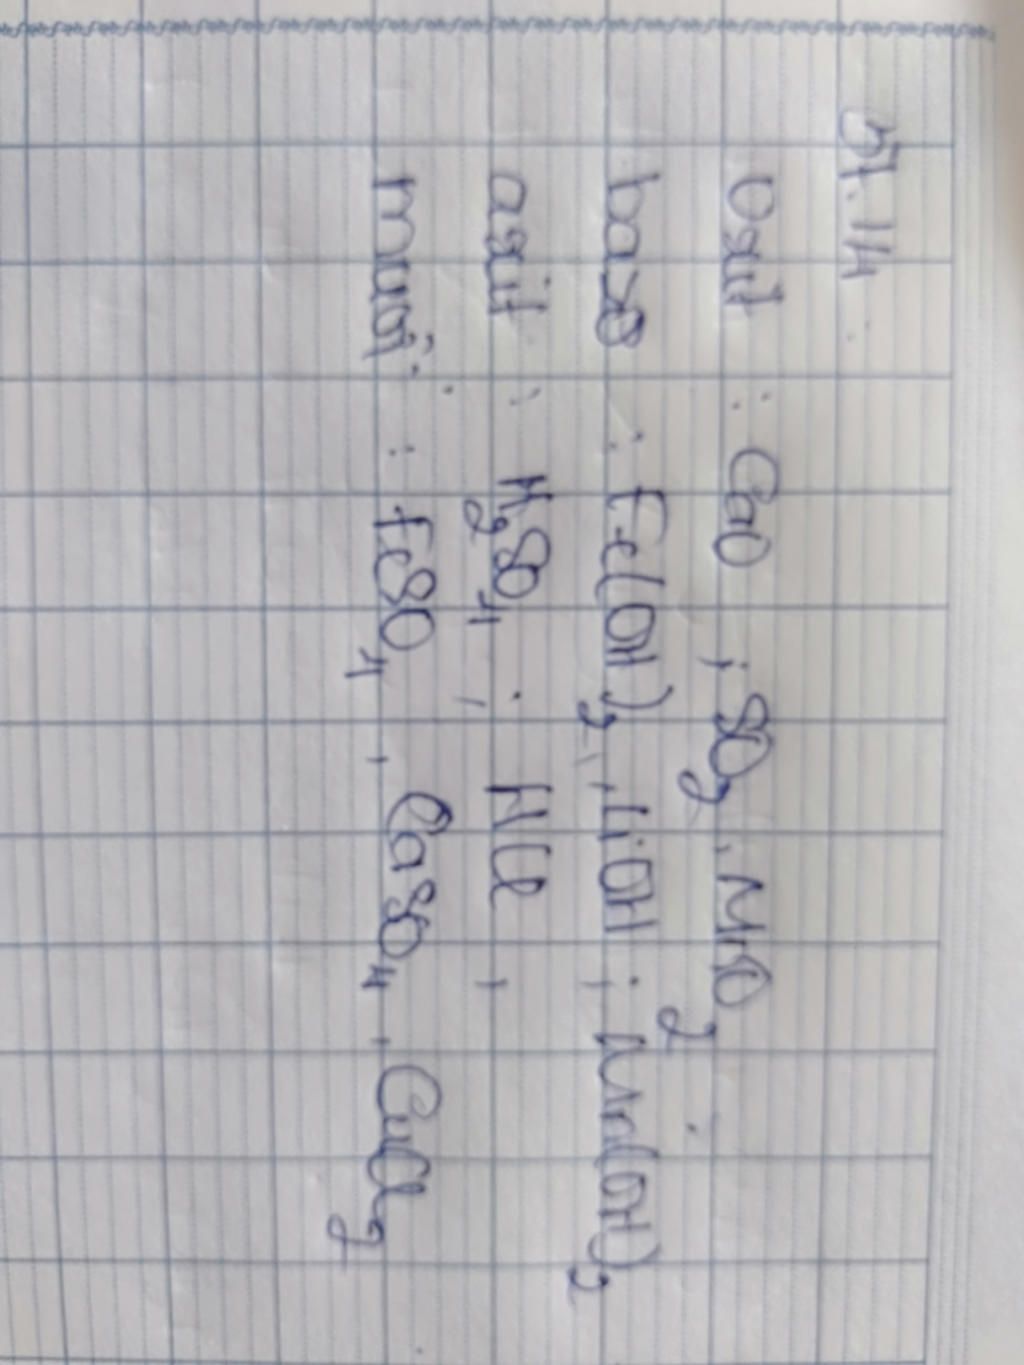 51.14
Oxit : CaO ; SO2, MnO2
bazơ : Fe(OH)2, LiOH ; Mn(OH)2
axit : H2SO4 ; HCl,
muối : FeSO4, CaSO4, CuCl2